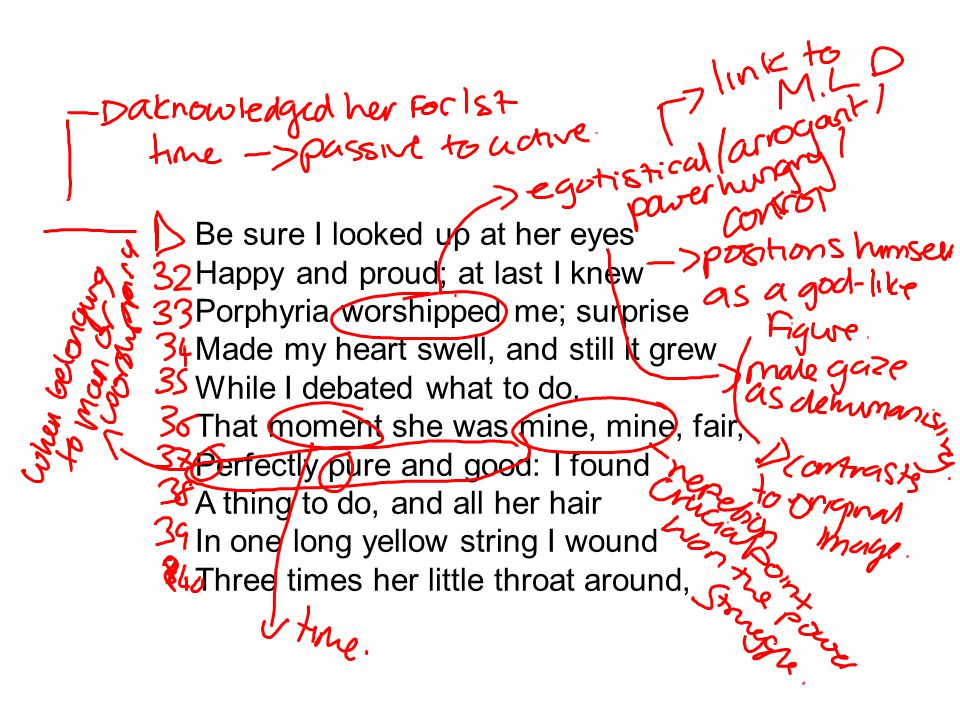 aknowledged her For 1st
time -> passive to active.
link to
M.L.D
egotistical / arrogant /
power hungry /
control
Be sure I looked up at her eyes
32 Happy and proud; at last I knew
33 Porphyria worshipped me; surprise
34 Made my heart swell, and still it grew
35 While I debated what to do.
36 That moment she was mine, mine, fair,
37 Perfectly pure and good: I found
38 A thing to do, and all her hair
39 In one long yellow string I wound
40 Three times her little throat around,
-> positions humself
as a god-like
Figure.
male gaze
as dehumanising.
contrasts
to original
image.
crucial point
won the power
struggle.
time.
when belonging
to man or